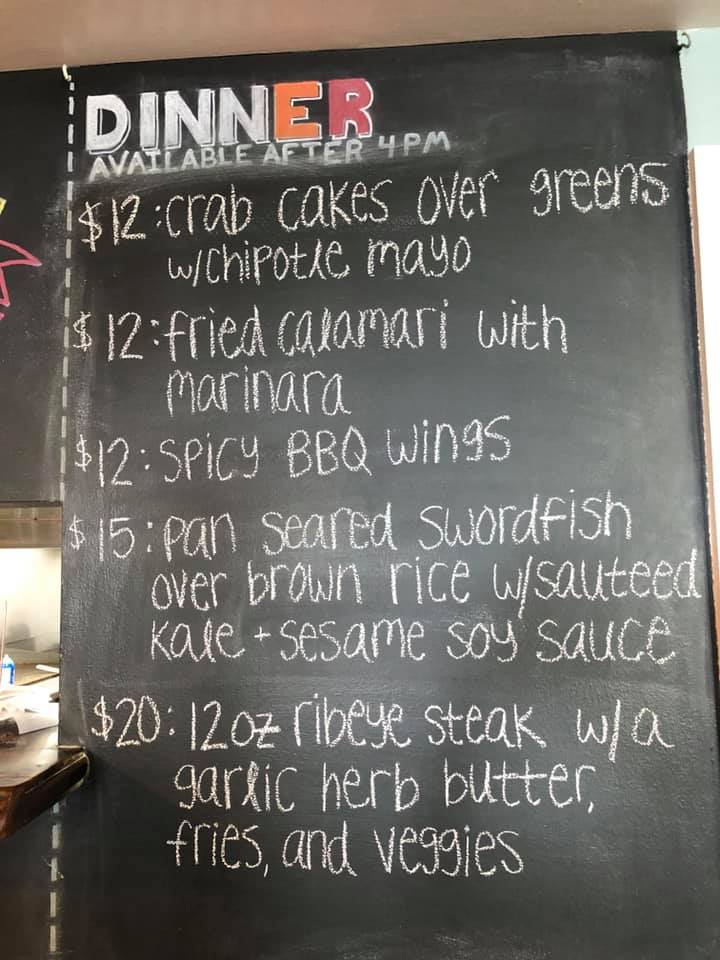 DINNER
AVAILABLE AFTER 4PM
$12:crab cakes over greens
w/chipotle mayo
$12:fried calamari with
marinara
$12:SPICY BBQ wings
$15:pan seared swordfish
over brown rice w/sauteed
kale + sesame soy sauce
$20:12oz ribeye steak w/a
garlic herb butter,
fries, and veggies